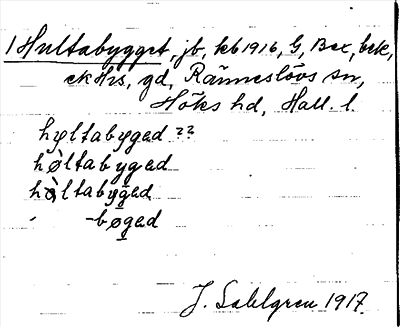 1 Hultabygget, jb, kb 1916, G, Bex, bek,
ek Hrs, gd, Ränneslövs sn,
Höks hd, Hall. l.
hyltabyged ??
høltabyged
hòltabyged
- bøged
J. Sahlgren 1917.